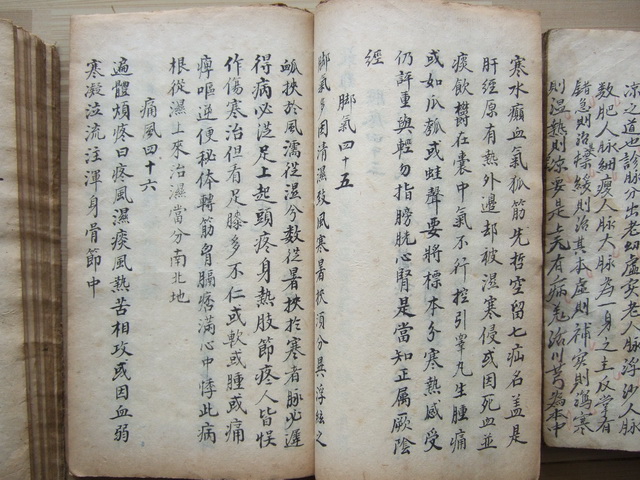 寒水癲血氣狐筋先哲空留七疝名蓋是
肝經原有熱外邉却被濕寒侵或因死血並
痰飲欝在囊中氣不行控引睪丸生腫痛
或如瓜瓠或蛙聲要將標本分寒熱感受
仍許重與輕勿指膀胱心腎是當知正属厥陰
經
脚氣四十五
脚氣多因清濕致風寒暑挾須分異浮絃之
脉挾於風濡從濕兮數從暑挾於寒者脉必遲
得病必從足上起頭疼身熱肢節疼人皆悞
作傷寒治但看足膝多不仁或軟或腫或痛
痺嘔逆便秘体轉筋胷膈痞滿心中悸此病
根從濕上來治濕當分南北地
痛風四十六
遍體煩疼曰疼風濕痰風熱苦相攻或因血弱
寒凝泣流注渾身骨節中
凉之道也診脉分出老幼虛实老人脉浮沙人脉
数肥人脉細瘦人脉大脉為一身之主反掌者
錯急則治標緩則治其本虛則補实則瀉寒
則温熱則凉